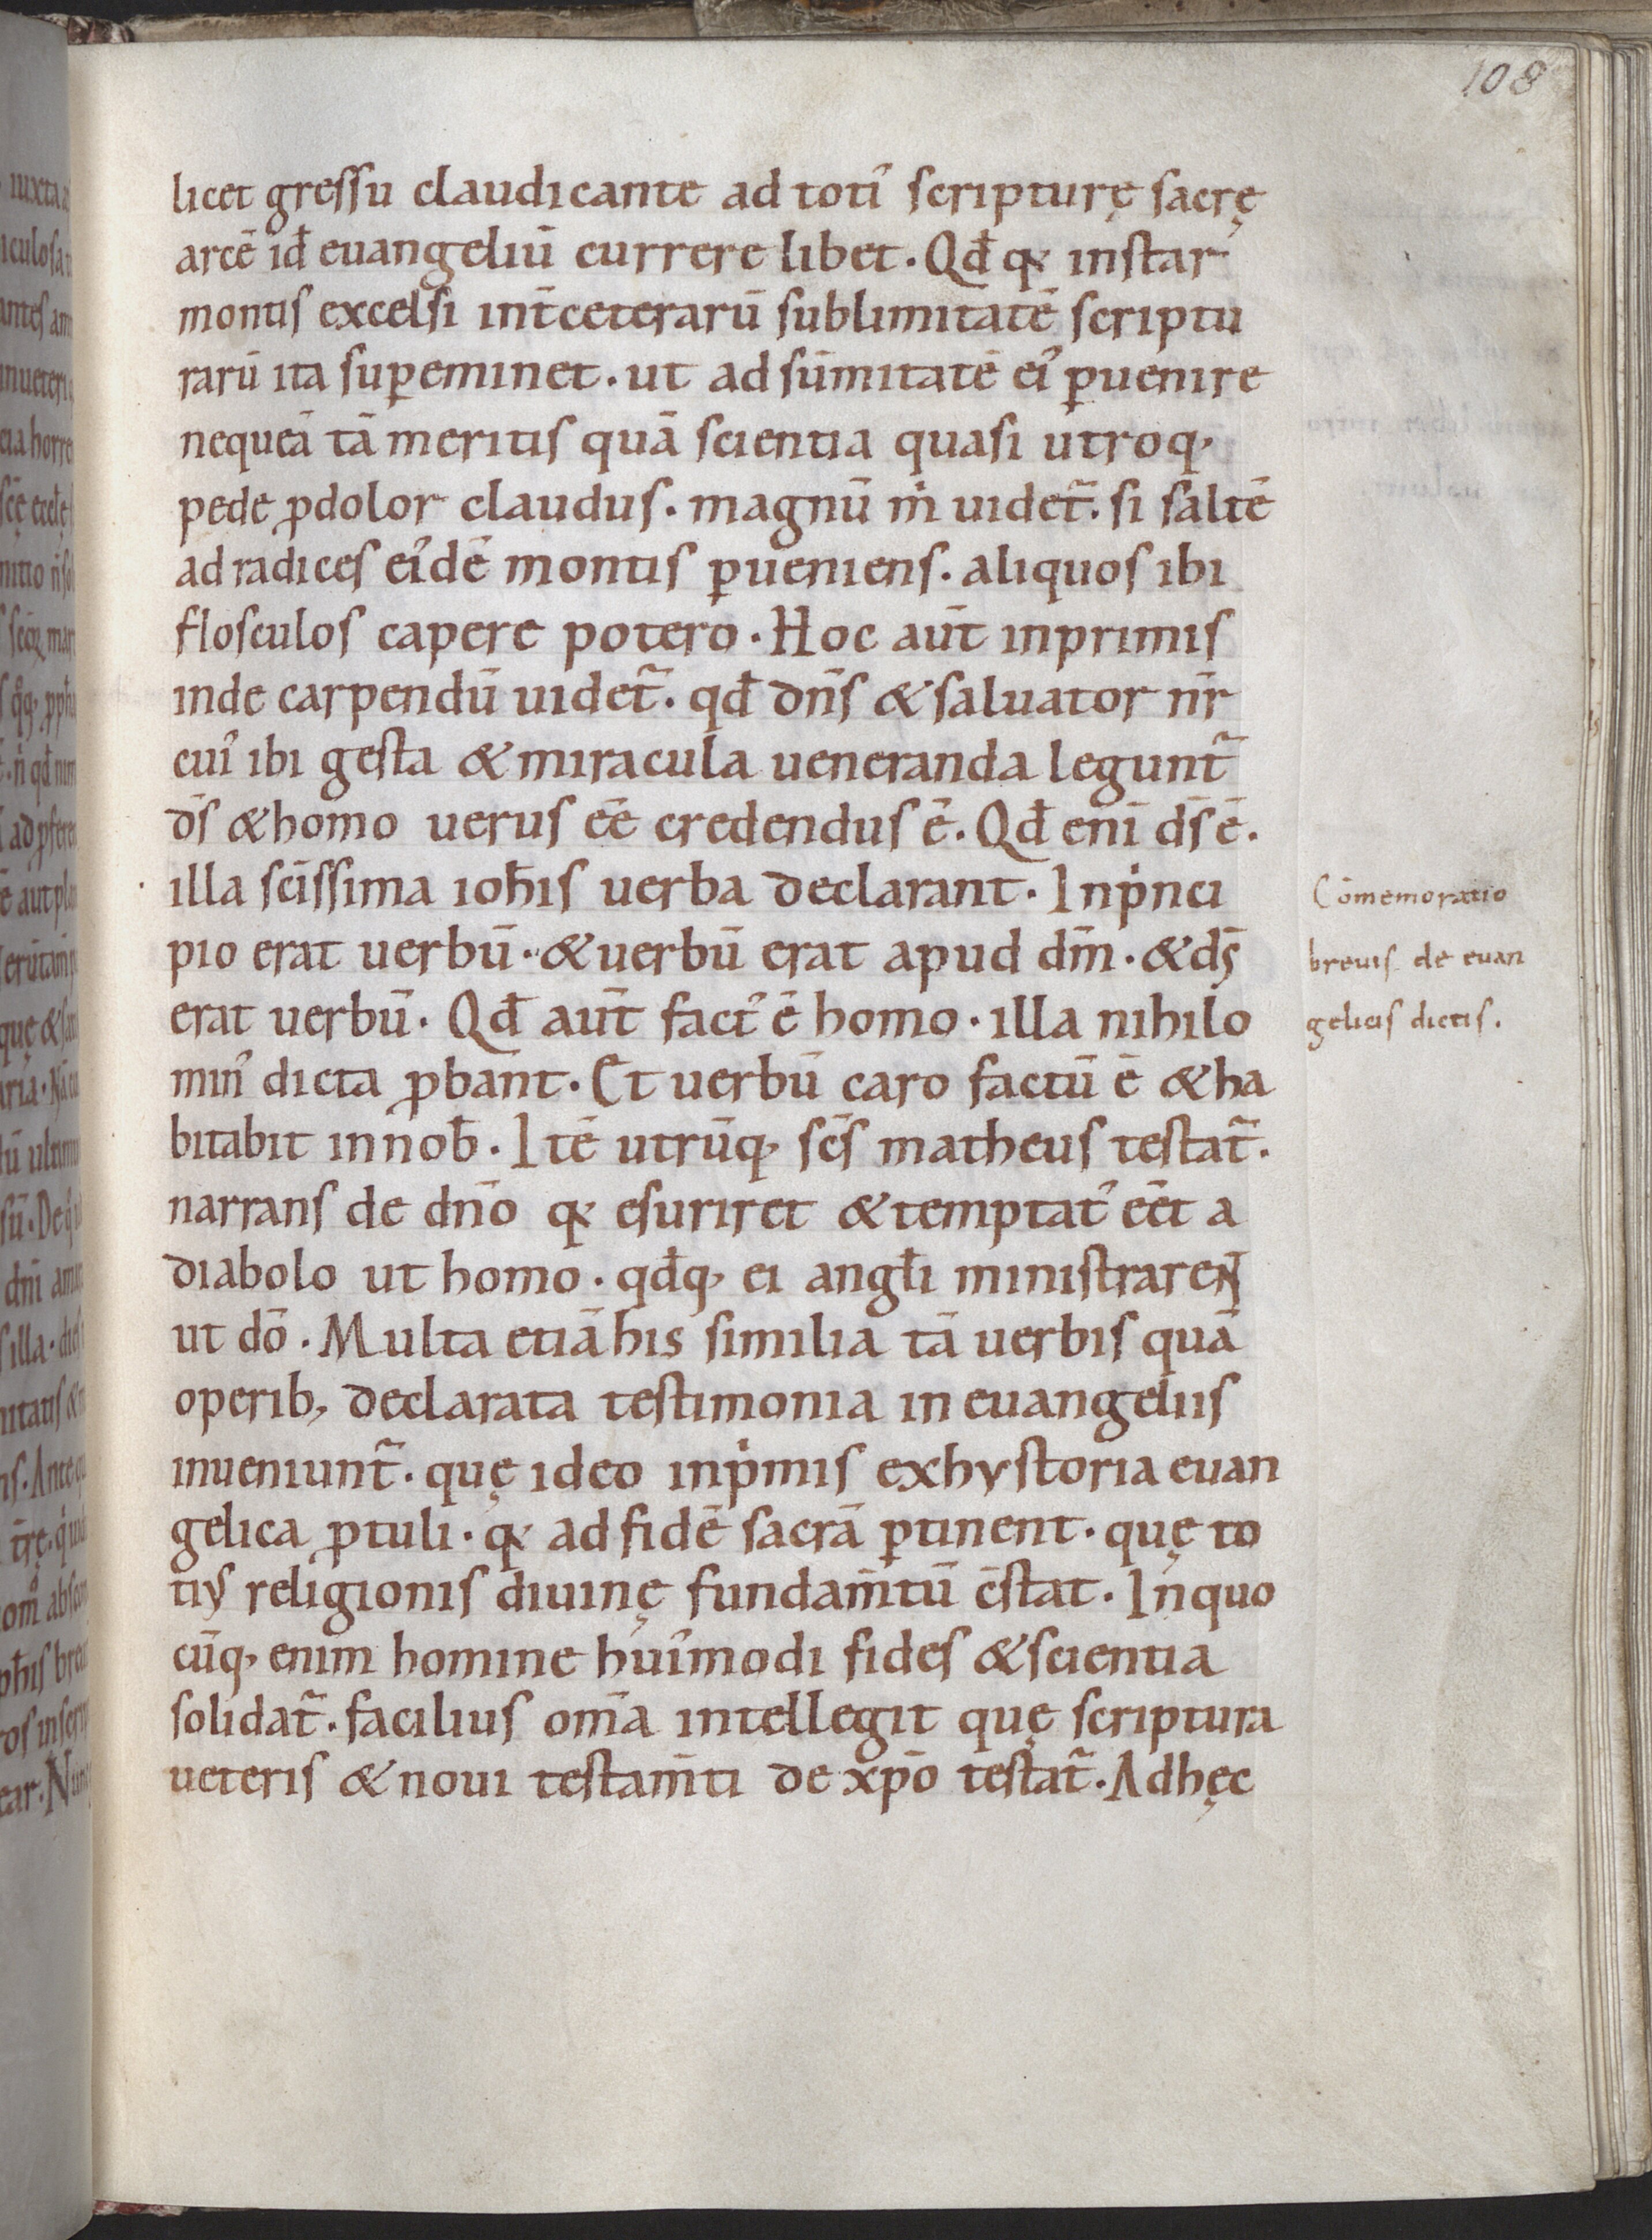 108
licet gressu claudicante ad toti᾽ scripturę sacrę
arcē id̄ euangeliū currere libet. Qd̄ qꝛ instar
montis excelsi int̄ ceterarū sublimitatē scriptu
rarū ita suꝑeminet. ut ad sūmitatē ei᾽ ꝑuenire
nequeā tā meritis quā scientia quasi utroq,
pede ꝓdolor claudus. magnū m̓ uidet᷑. si saltē
ad radices ei᾽dē montis ꝑueniens. aliquos ibi
flosculos capere potero. Hoc aūt inprimis
inde carpendū uidet᷑. qd̄ dn̄s & saluator nr̄
cui᾽ ibi gesta & miracula ueneranda legunt᷑
ds̄ & homo uerus eē credendus ē. Qd̄ enī ds̄ ē.
illa scīssima ioh̄is uerba declarant. Inp̓nci
pio erat uerbū. & uerbū erat apud dm̄. & ds̄
erat uerbū. Qd̄ aūt fact᾽ ē homo. illa nihilo
min᾽ dicta ꝓbant. Et uerbū caro factū ē & ha
bitabit in nob̄. Itē utrūq, scs̄ matheus testat᷑.
narrans de dn̄o qꝛ esuriret & temptat᾽ eēt a
diabolo ut homo. qd̄q, ei angłi ministrarent
ut dō. Multa etiā his similia tā uerbis quā
operib, declarata testimonia in euangeliis
inueniunt᷑. quę ideo inp̓mis ex hystoria euan
gelica ꝓtuli. qꝛ ad fidē sacrā ꝑtinent. quę to
tius religionis diuinę fundam̄tū c̄stat. In quo
cūq, enim homine hui᾽modi fides & scientia
solidat᷑. facilius om̄a intellegit quę scriptura
ueteris & noui testam̄ti de xp̄o testat᷑. Ad hęc
Cōmemoratio
breuis de euan
gelicis dictis.